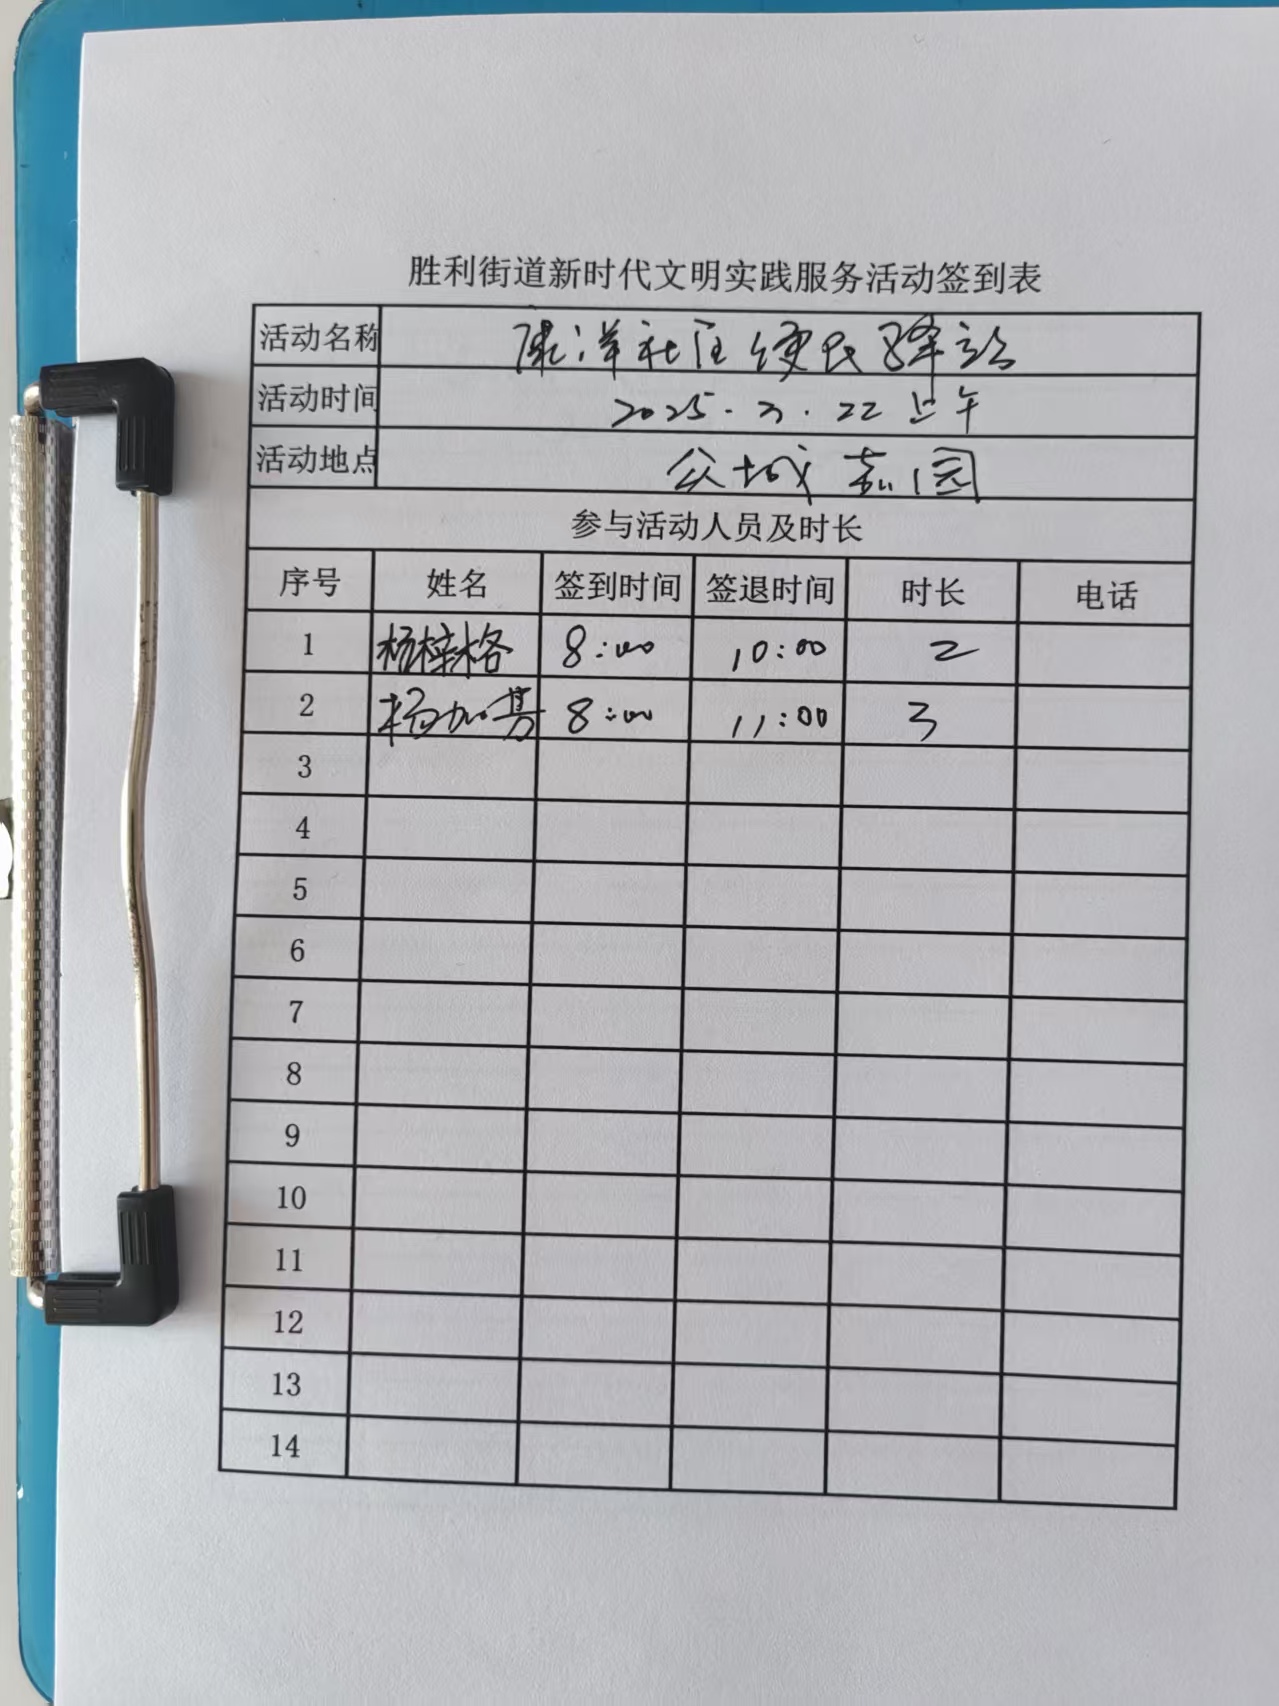 胜利街道新时代文明实践服务活动签到表
活动名称 康洋社区便民驿站
活动时间 2025.3.22 上午
活动地点 公城嘉园
参与活动人员及时长
序号 姓名 签到时间 签退时间 时长 电话
1 杨梓格 8:00 10:00 2
2 杨加 8:00 11:00 3
3
4
5
6
7
8
9
10
11
12
13
14